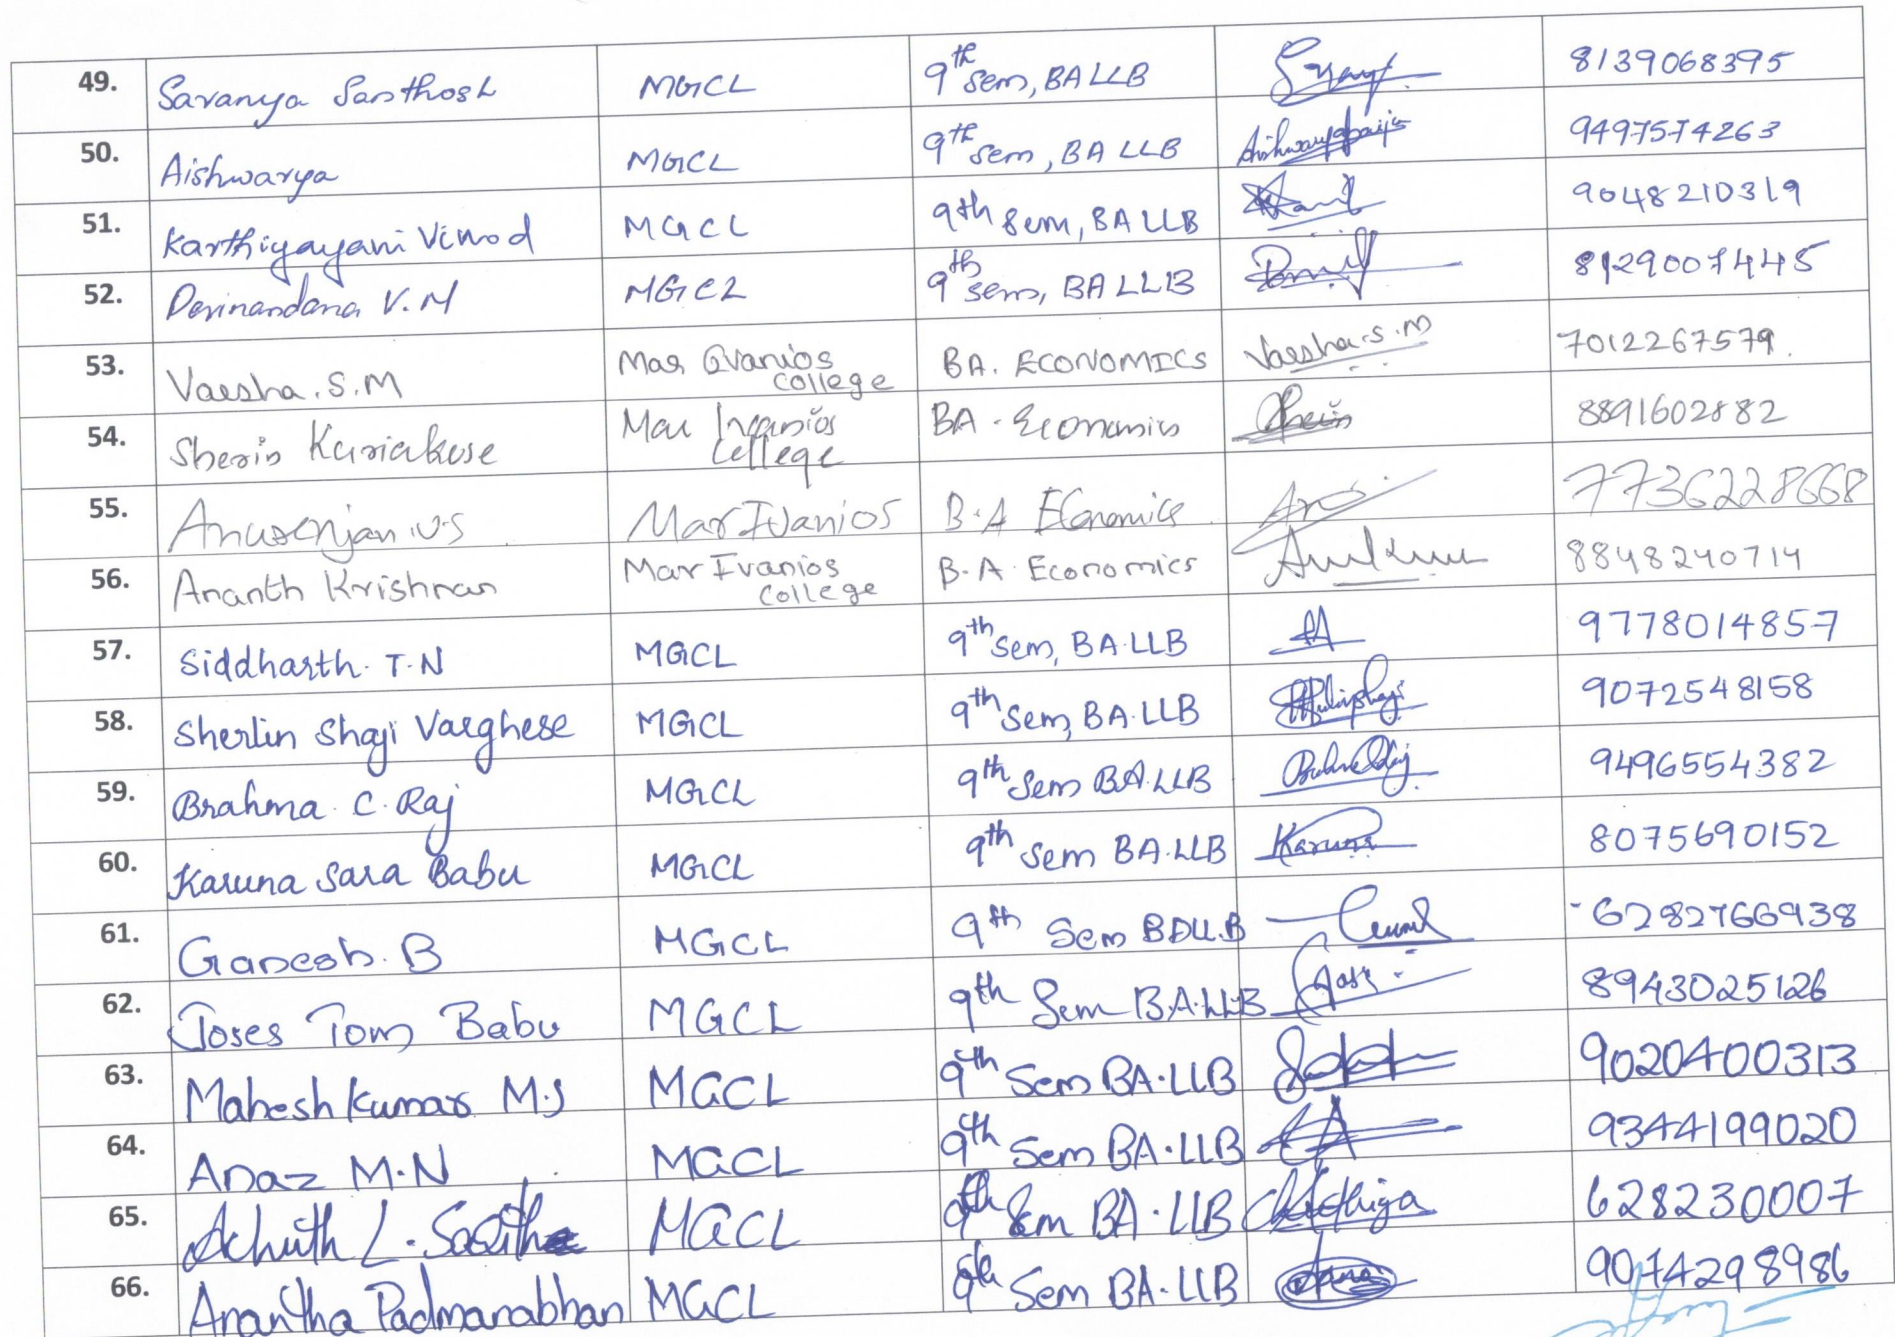 49. Saranya Santhosh MGCL 9th sem, BA LLB 8139068395
50. Aishwarya MGCL 9th sem, BA LLB 9497574263
51. Karthiyayani Vinod MGCL 9th Sem, BA LLB 9048210319
52. Devinandana V.M MGCL 9th sem, BA LLB 8129007445
53. Varsha.S.M Mar Ivanios College BA. ECONOMICS Varsha.S.M 7012267579.
54. Sherin Kuriakose Mar Ivanios College BA - Economics 8891602882
55. Anusenjan.V.S Mar Ivanios B.A Economics 7736228668
56. Ananth Krishnan Mar Ivanios College B.A Economics 8848240714
57. Siddharth. T.N MGCL 9th Sem, BA.LLB 9778014857
58. Sherlin Shaji Varghese MGCL 9th Sem, BA.LLB 9072548158
59. Brahma. C. Raj MGCL 9th Sem BA.LLB 9496554382
60. Karuna Sara Babu MGCL 9th Sem BA.LLB Karuna 8075690152
61. Ganesh. B MGCL 9th Sem BALL.B 6282766938
62. Joses Tom Babu MGCL 9th Sem BA.LLB 8943025126
63. Mahesh Kumar M.S MGCL 9th Sem BA.LLB 9020400313
64. Anaz M.N MGCL 9th Sem BA.LLB 9344199020
65. Achuth L. MGCL 9th Sem BA.LLB 628230007
66. Anantha Padmanabhan MGCL 9th Sem BA.LLB 9074298986